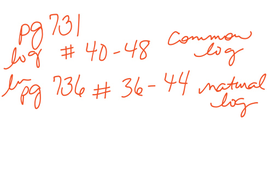 pg 731
log # 40-48 common log
ln pg 736 # 36-44 natural log